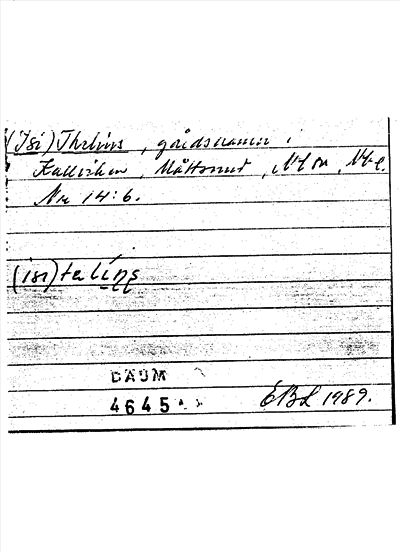 (Isi) Thelins, gårdsnamn i
Kallviken, Måttsund, Nl sn, Nb l.
Nr 14:6.
(isi) telins
DAUM
4645
EBL 1989.